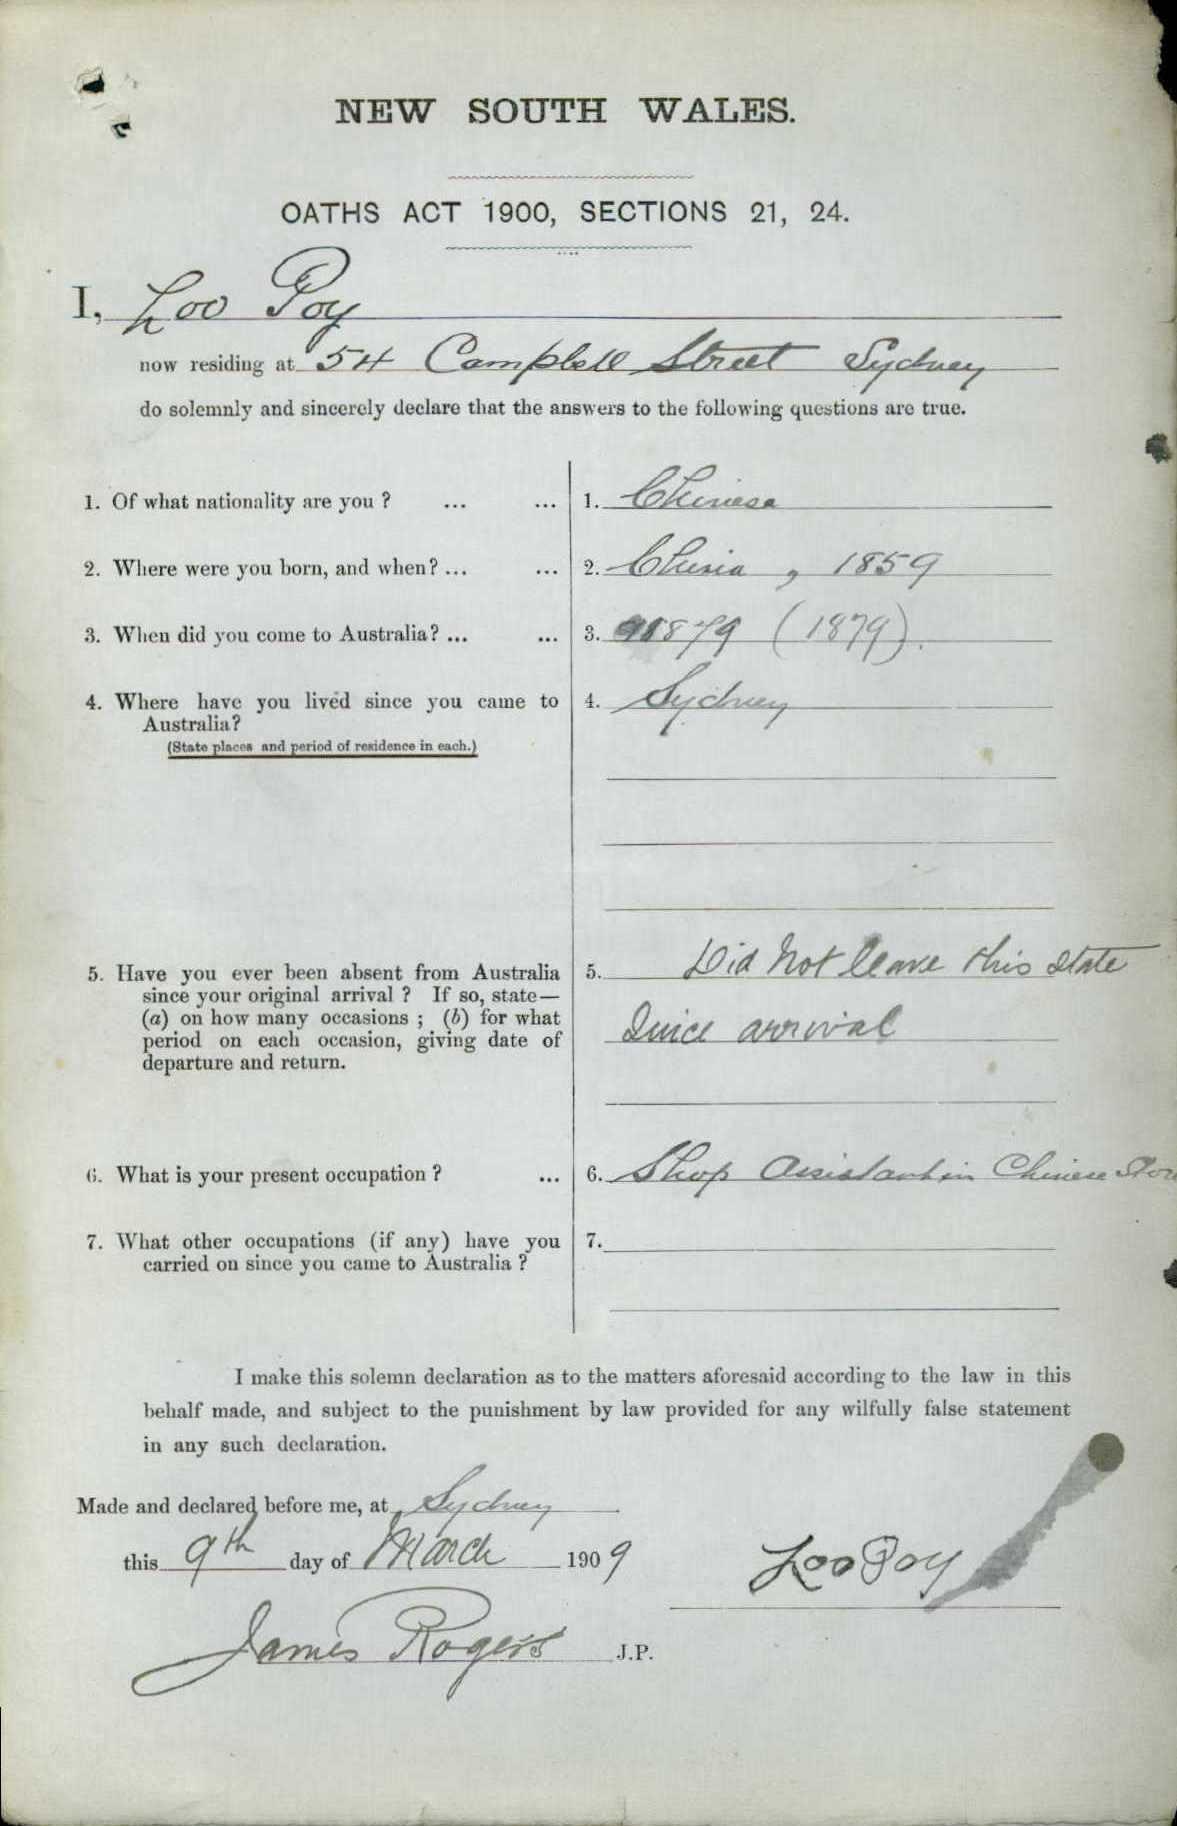 NEW SOUTH WALES.
OATHS ACT 1900, SECTIONS 21, 24.
I, Loo Poy
now residing at 54 Campbell Street Sydney
do solemnly and sincerely declare that the answers to the following questions are true.
1. Of what nationality are you ? ... ... 1. Chinese
2. Where were you born, and when? ... ... 2. China , 1859
3. When did you come to Australia? ... ... 3. 1879 (1879).
4. Where have you lived since you came to 4. Sydney
Australia?
(State places and period of residence in each.)
5. Have you ever been absent from Australia 5. Did Not leave this State
since your original arrival ? If so, state—
(a) on how many occasions ; (b) for what Since arrival
period on each occasion, giving date of
departure and return.
6. What is your present occupation ? ... 6. Shop Assistant in Chinese Store
7. What other occupations (if any) have you 7.
carried on since you came to Australia ?
I make this solemn declaration as to the matters aforesaid according to the law in this
behalf made, and subject to the punishment by law provided for any wilfully false statement
in any such declaration.
Made and declared before me, at Sydney
this 9th day of March 1909 Loo Poy
James Rogers J.P.